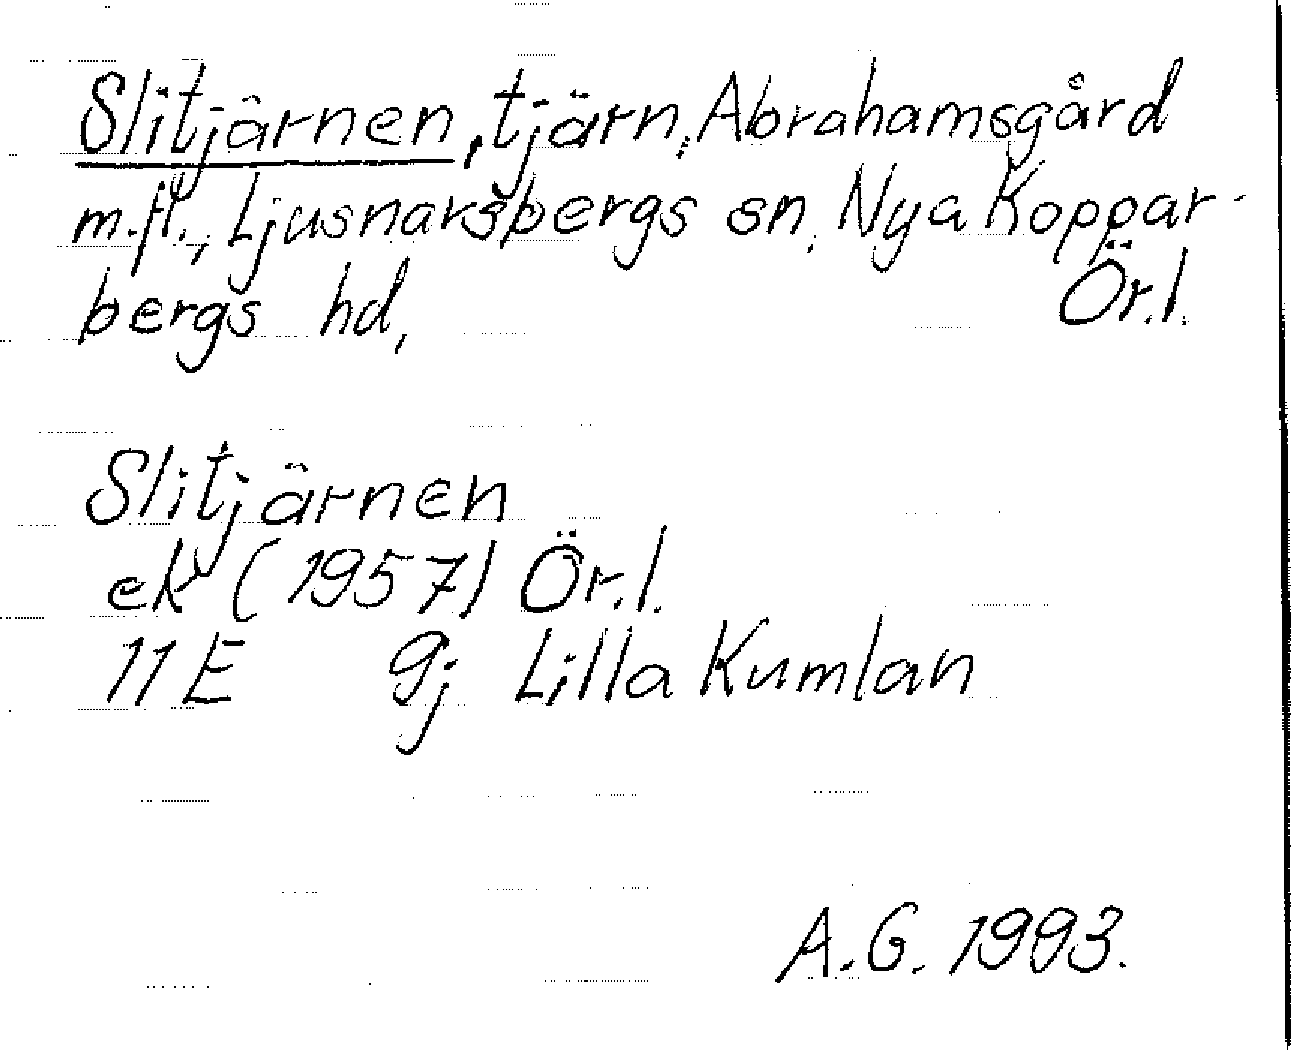 Slitjärnen, tjärn, Abrahamsgård
m.fl., Ljusnarsbergs sn, Nya Koppar-
bergs hd, Ör.l.
Slitjärnen
ek (1957) Ör.l.
11E 9j Lilla Kumlan
A.G. 1993.